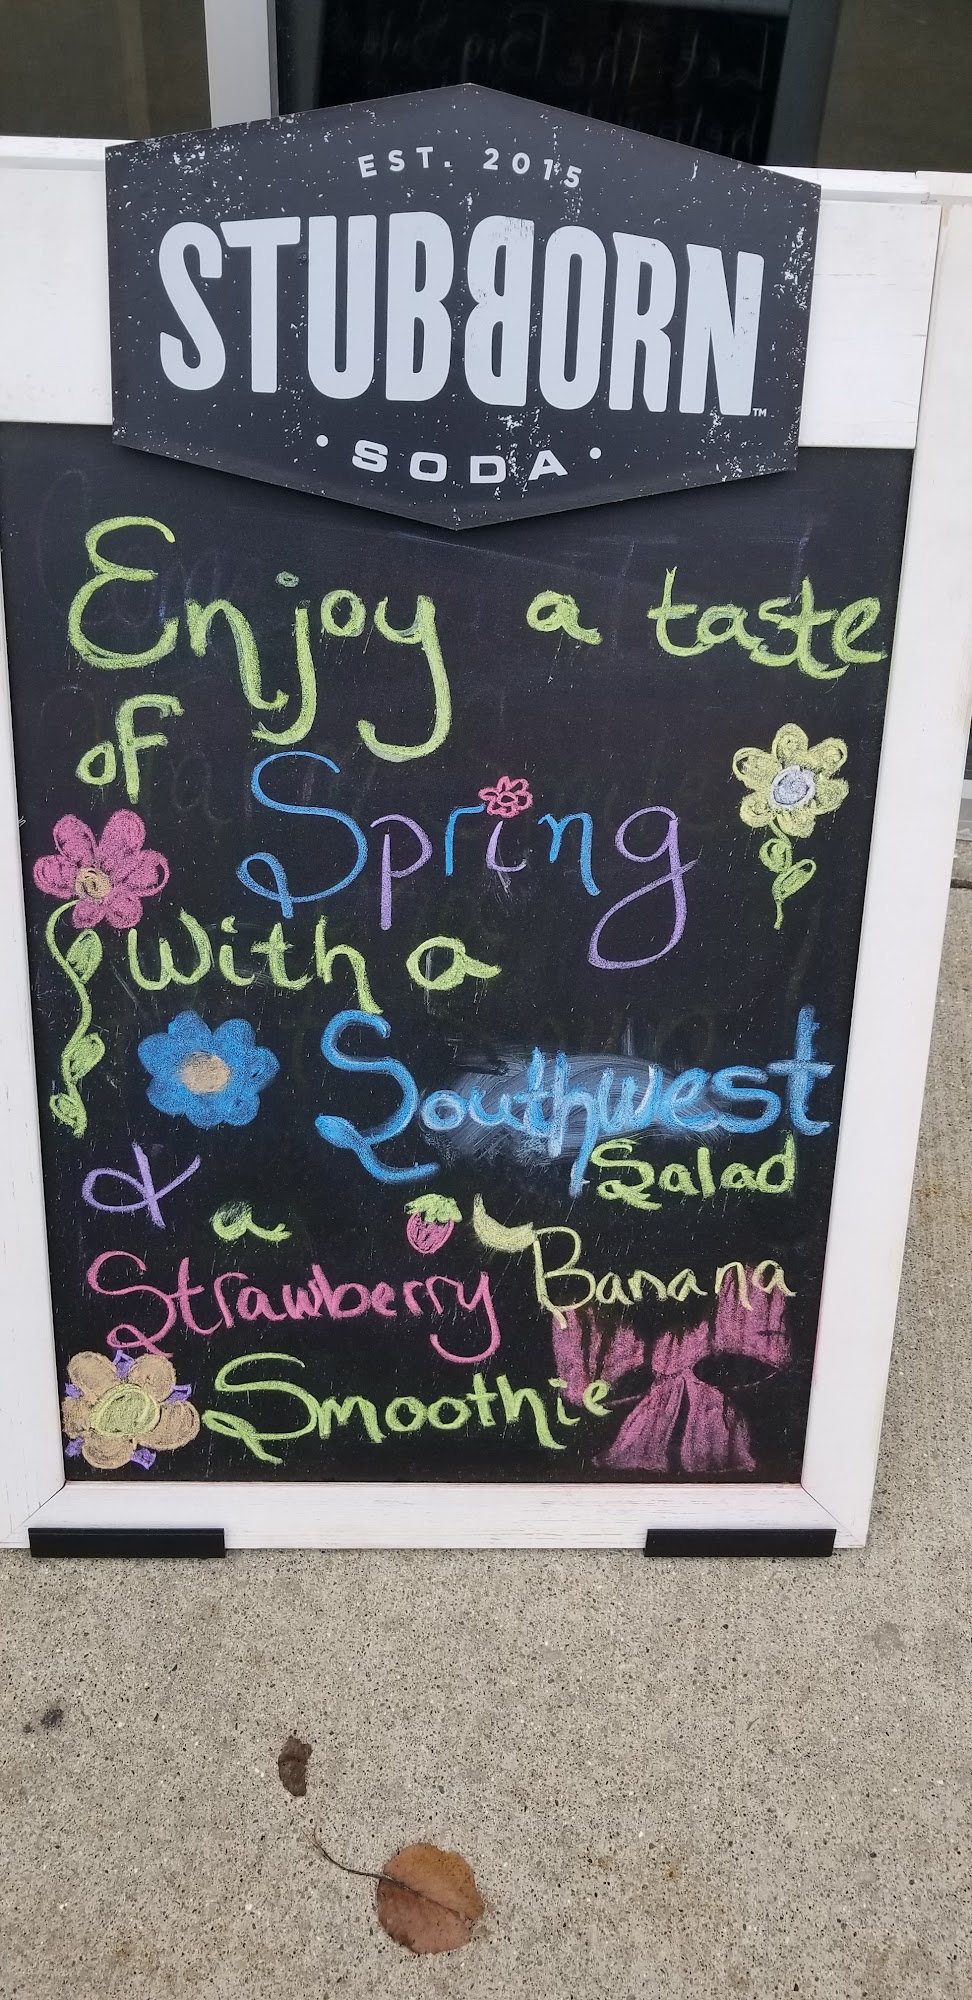 EST. 2015
STUBBORN
TM
• SODA •
Enjoy a taste
of
Spring
with a
Southwest
Salad
& a
Strawberry Banana
Smoothie